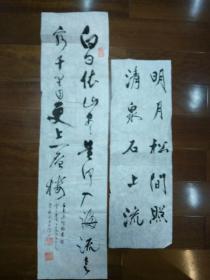 明月松间照
清泉石上流
白日依山尽黄河入海流欲
穷千里目更上一层楼